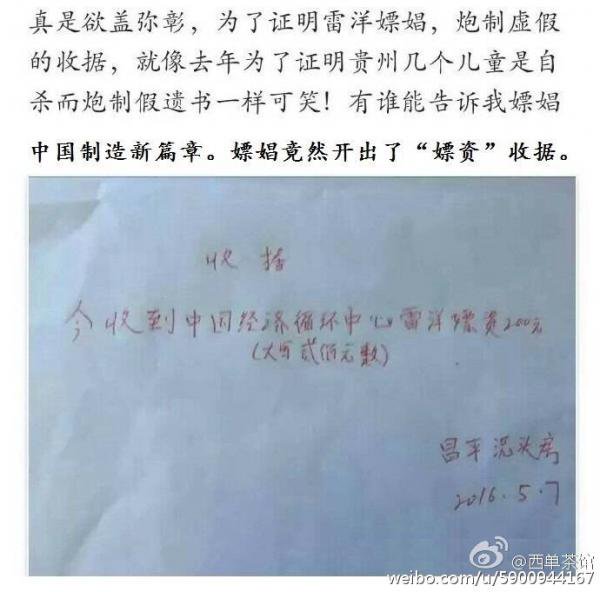 真是欲盖弥彰，为了证明雷洋嫖娼，炮制虚假
的收据，就像去年为了证明贵州几个儿童是自
杀而炮制假遗书一样可笑！有谁能告诉我嫖娼
中国制造新篇章。嫖娼竟然开出了“嫖资”收据。
收据
今收到中国经济循环中心雷洋嫖资200元
(大写贰佰元数)
昌平洗头房
2016.5.7
@西单茶馆
weibo.com/u/5900944167